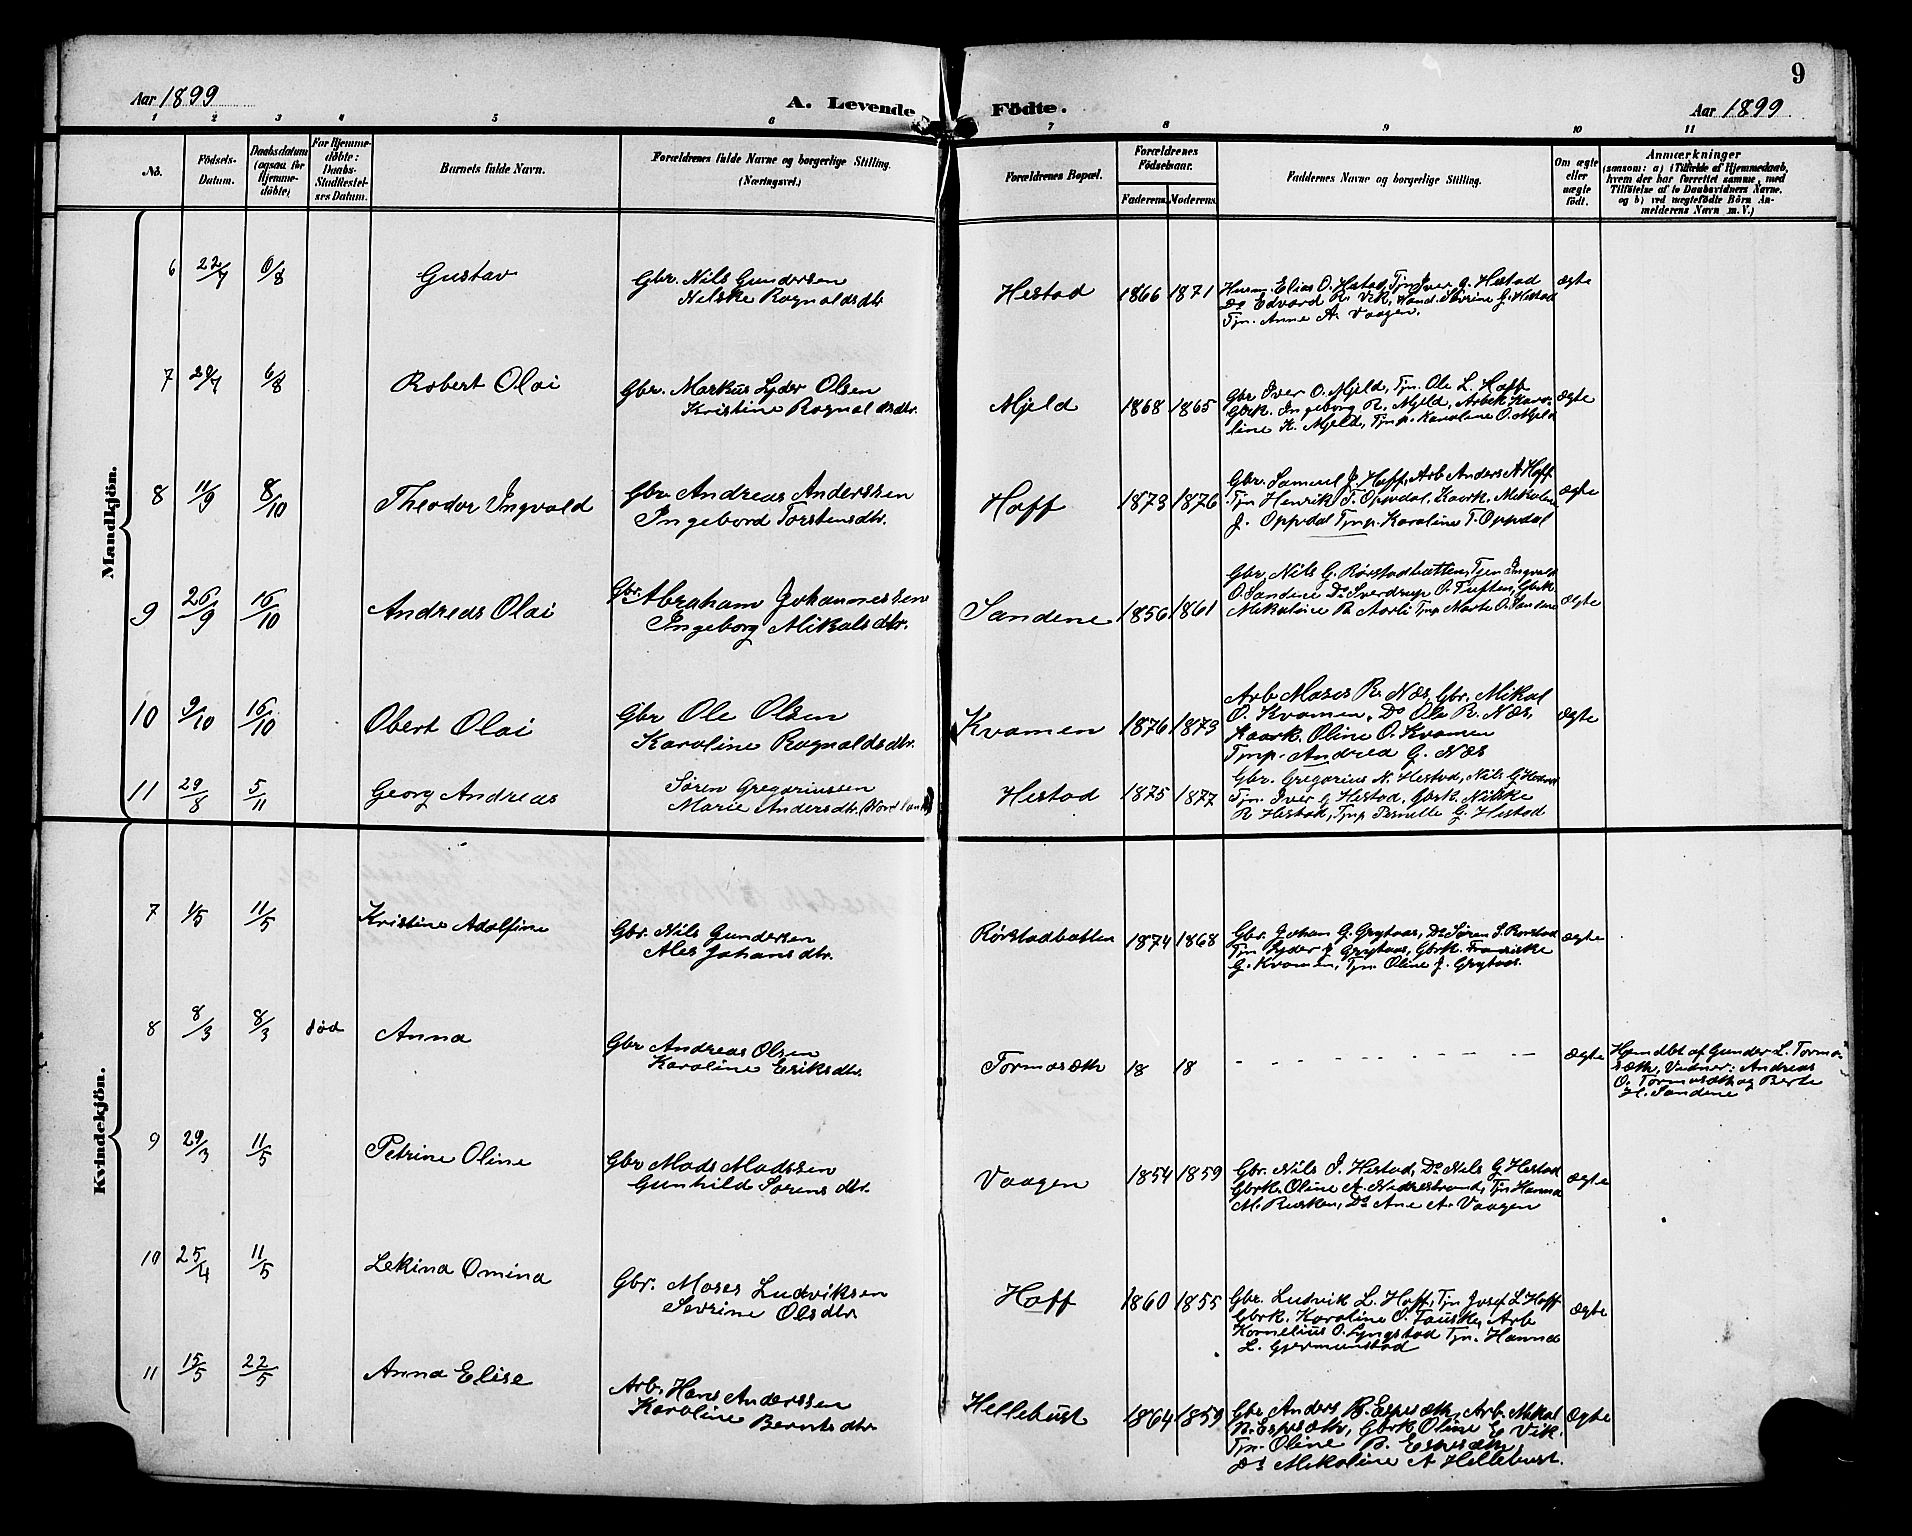 9
Aar 1899
A. Levende Födte.
Aar 1899
1 2 3 4 5 6 7 8 9 10 11
No.
Födsels-
Datum.
Daabsdatum
(ogsaa for
Hjemme-
döbte)
For Hjemme-
döbte:
Daabs-
Stadfæstel-
ses Datum.
Barnets fulde Navn.
Forældrenes fulde Navne og borgerlige Stilling.
(Næringsvei.)
Forældrenes Bopæl.
Forældrenes
Födselsaar.
Faderens.
Moderens.
Faddernes Navne og borgerlige Stilling.
Om ægte
eller
uægte
födt.
Anmærkninger
(saasom: a) i Tilfælde af Hjemmedaab,
hvem der har forrettet samme, med
Tilföielse af to Daabsvidners Navne,
og b) ved uægtefödte Börn An-
melderens Navn m. V.)
Mandkjön.
6 22/7 6/8 Gustav
Gbr. Nils Gundersen
Nilske Rognaldsdtr
Hestad 1866 1871
Husm. Elias O. Hestad, Tjn Iver G. Hestad
Do Edvard R. Vik, Hand. Sevrine G. Hestad
Tjn. Anne A. Vaagen.
Ægte
7 29/7 6/8 Robert Olai
Gbr. Markus Lyder Olsen
Kristine Rognaldsdtr.
Mjeld 1868 1865
Gbr Iver O. Mjeld, Tjn. Ole L. Hoff
Gbrk. Ingeborg R. Mjeld, Arbk Karo-
line K. Mjeld, Tjnp. Karoline O. Mjeld
Ægte
8 11/9 8/10 Theodor Ingvald
Gbr Andreas Anderssen
Ingebord Torstensdtr.
Hoff 1873 1876
Gbr. Samuel J. Hoff, Arb Anders A Hoff
Tjn Henrik T. Oppdal, Kaark. Mikoline
J. Oppdal Tjnp. Karoline T. Oppdal
Ægte
9 26/9 16/10 Andreas Olai
Gbr. Abraham Johannessen
Ingeborg Mikalsdtr.
Sandene 1856 1861
Gbr, Nils G. Rørstadbotten, Tjen Ingvald
O. Sandene Do Sverdrup O. Tuften, Gbrk
Mikoline R. Aarli Tjnp Marte O. Sandene
Ægte
10 9/10 16/10 Obert Olai
Gbr Ole Olsen
Karoline Rognaldsdtr.
Kvamen 1876 1873
Arb Moses R. Næs, Gbr. Mikal
O. Kvamen, Do Ole R. Næs,
Kaark. Oline O. Kvamen
Tjnp. Andrea G. Næs
Ægte
11 29/8 5/11 Georg Andreas
Søren Gregoriussen
Marie Andersdtr. (Nordland)
Hestad 1875 1877
Gbr. Gregorius N. Hestad, Nils G Hestad
Tjn. Iver G Hestad, Gbrk. Nilske
R Hestad, Tjnp Pernille G. Hestad
Kvindekjön.
7 1/5 11/5 Kristine Adolfine
Gbr. Nils Gundersen
Ales Johansdtr.
Rørstadbotten 1874 1868
Gbr. Johan G. Grytaas, Do Søren S. Rørstad
Tjn Lyder J Grytaas, Gbrk. Franciske
G. Kvamen, Tjn. Oline J. Grytaas.
Ægte
8 8/3 8/3 død Anna
Gbr Andreas Olsen
Karoline Eriksdtr.
Tormasæth 18 18
- - - - - - - -
Ægte
Hjemdbt af Gunder L. Torma-
sæth, Vidner: Andreas
O. Tormasæth og Berte
H. Sandene
9 29/3 11/5 Petrine Oline
Gbr Mads Madssen
Gunhild Sørensdtr.
Vaagen 1854 1859
Gbr. Nils I. Hestad, Do Nils G Hestad
Gbrk. Oline A. Nedrestrand, Tjn Hanna
M. Risken, Do Ane A. Vaagen
Ægte
10 25/4 11/5 Lekina Omina
Gbr. Moses Ludviksen
Sevrine Olsdtr
Hoff 1860 1855
Gbr. Ludvik L. Hoff, Tjn Josef L Hoff
Gbrk. Karoline O. Fauske, Arb
Kornelius O. Lyngstad Tjn. Hanna
L. Gjermundstad
Ægte
11 15/5 22/5 Anna Elise
Arb. Hans Anderssen
Karoline Berntsdtr
Hellebust 1864 1859
Gbr Anders B. Espesæth, Arb. Mikal
B. Espesæth, Gbrk Oline E Vik.
Tjn. Oline B. Espesæth
Do Mikoline A Hellebust.
Ægte